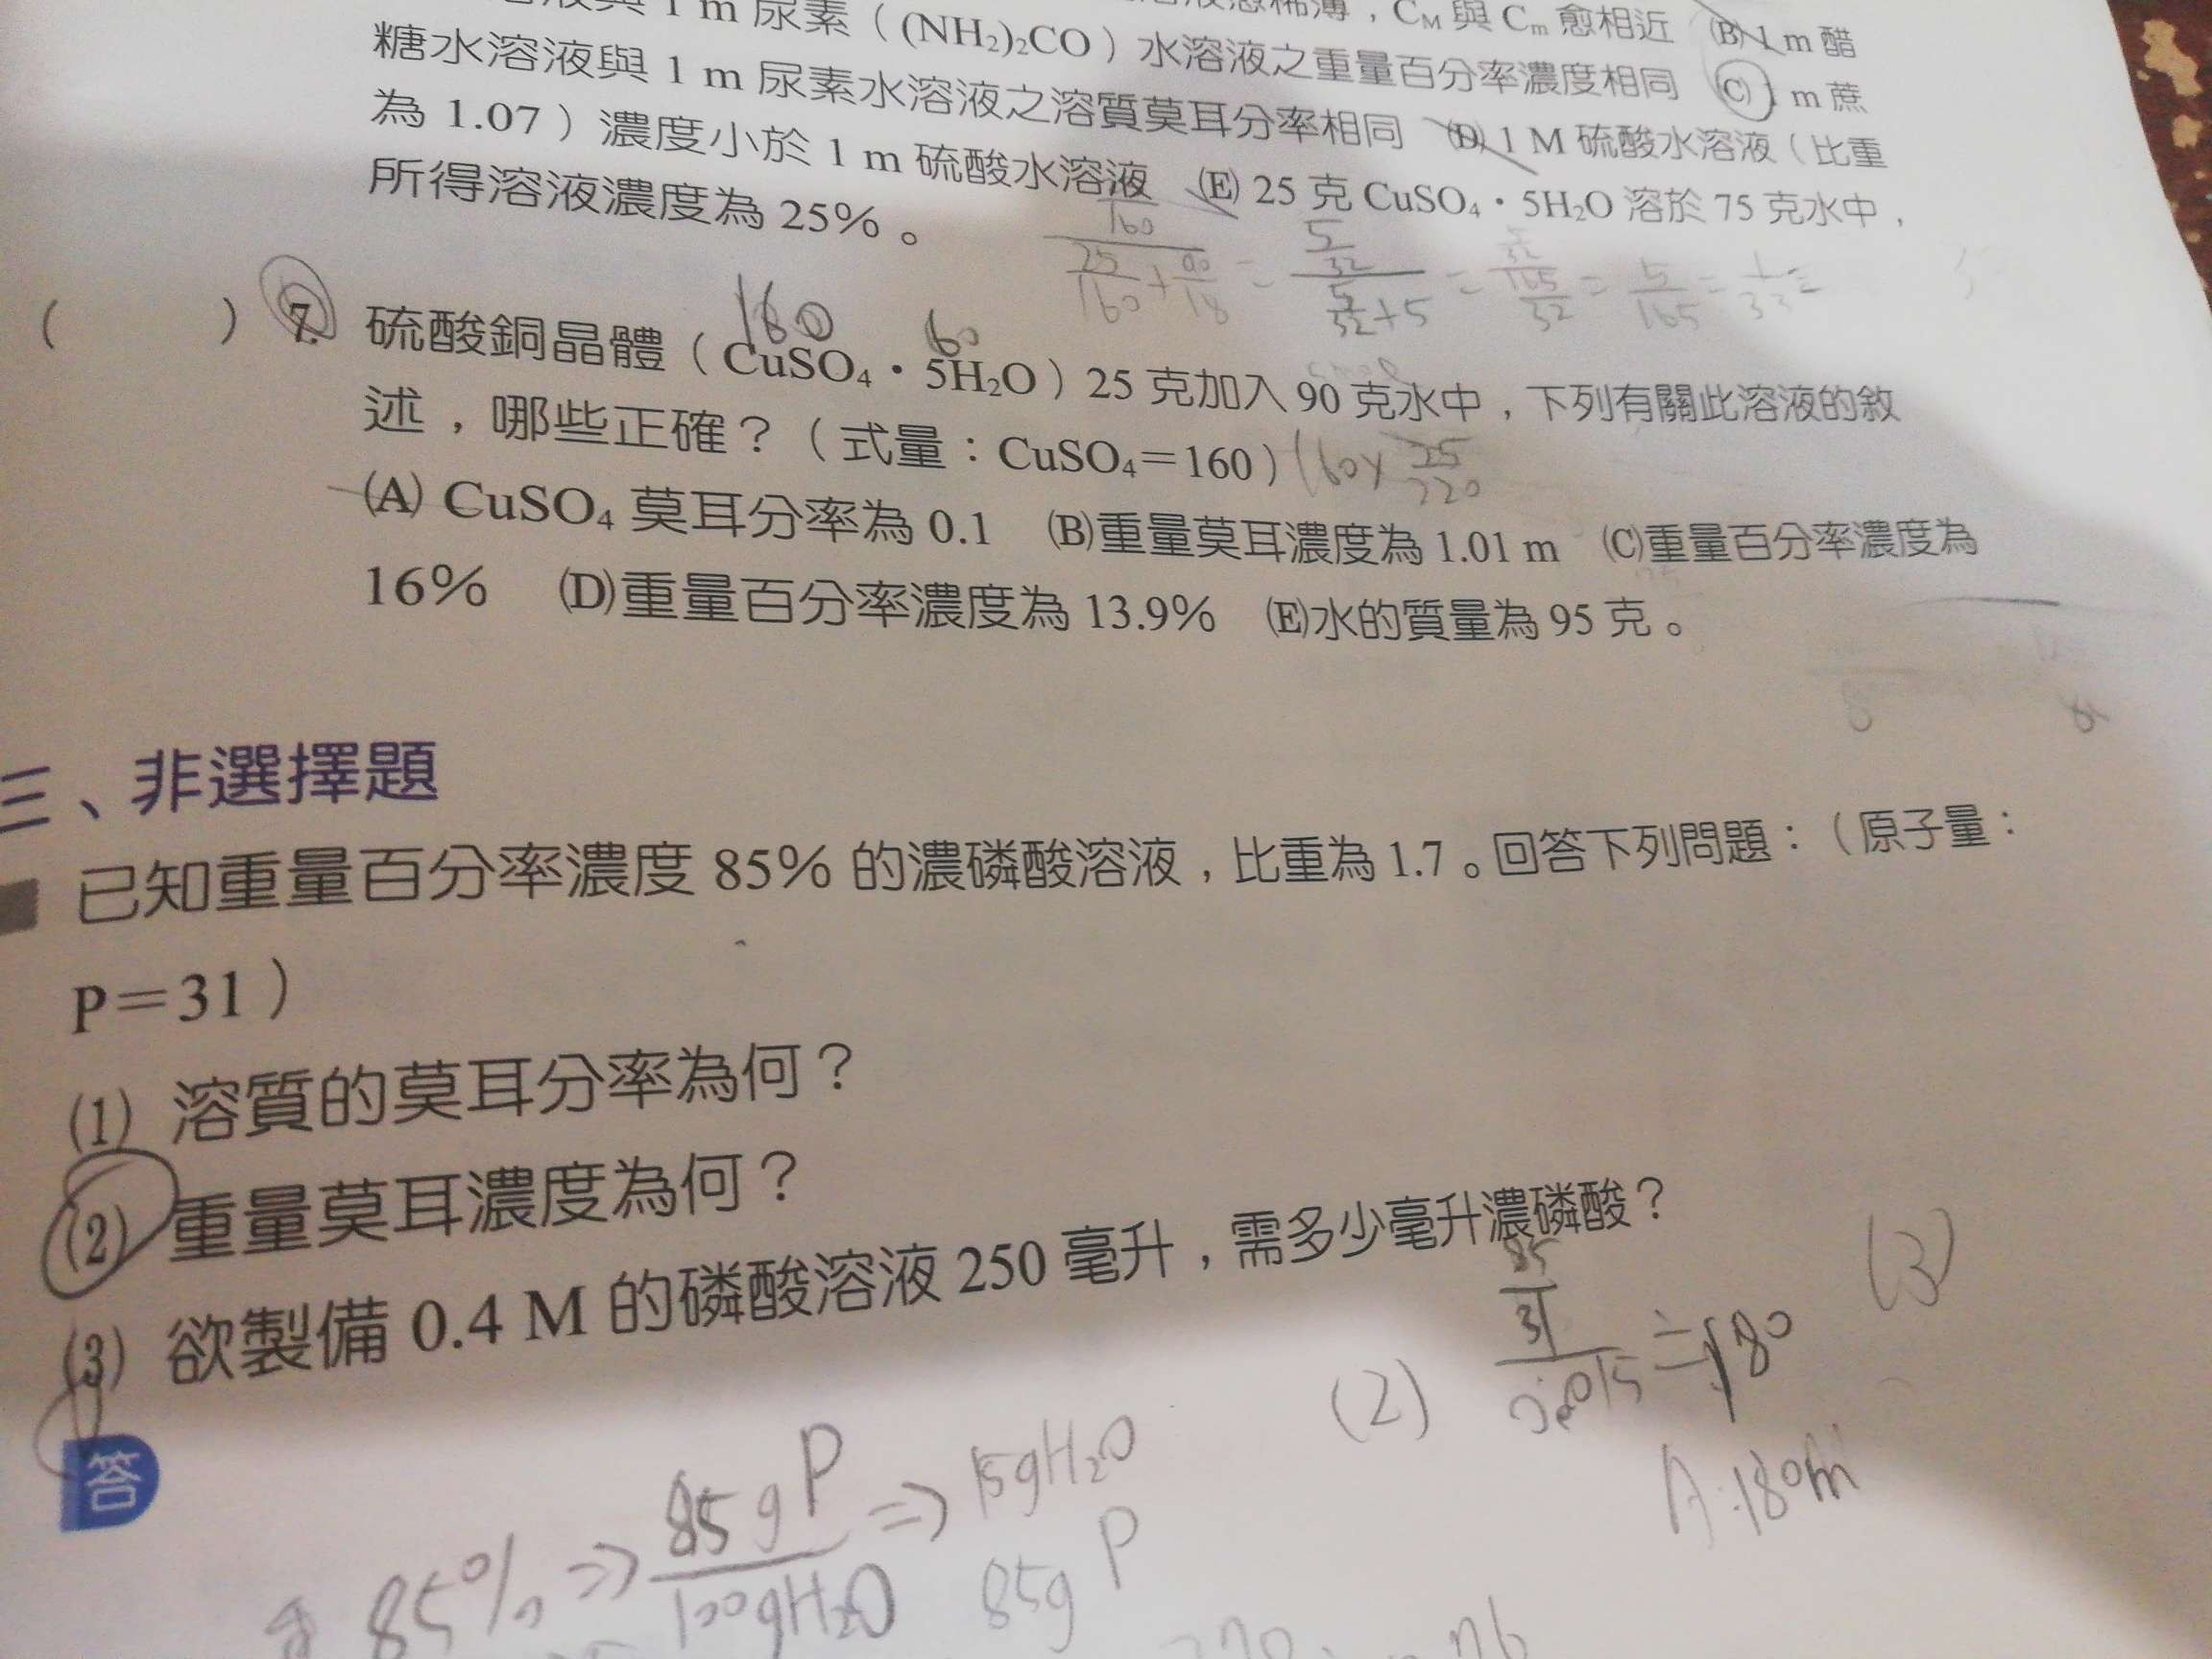 1 m 尿素（(NH₂)₂CO）水溶液之重量百分率濃度相同 (C) 1 m 蔗
愈相近 (B) 1 m 醋
糖水溶液與 1 m 尿素水溶液之溶質莫耳分率相同 (D) 1 M 硫酸水溶液（比重
為 1.07）濃度小於 1 m 硫酸水溶液 (E) 25 克 CuSO₄・5H₂O 溶於 75 克水中，
所得溶液濃度為 25%。
160
25/160 + 90/18 = 5/32 / 5/32+5 = = 5/165 = 1/33
160 60
( ) 7. 硫酸銅晶體（CuSO₄・5H₂O）25 克加入 90 克水中，下列有關此溶液的敘
述，哪些正確？（式量：CuSO₄＝160）
(A) CuSO₄ 莫耳分率為 0.1 (B)重量莫耳濃度為 1.01 m (C)重量百分率濃度為
16% (D)重量百分率濃度為 13.9% (E)水的質量為 95 克。
三、非選擇題
已知重量百分率濃度 85% 的濃磷酸溶液，比重為 1.7。回答下列問題：（原子量：
P＝31）
(1) 溶質的莫耳分率為何？
(2) 重量莫耳濃度為何？
(3) 欲製備 0.4 M 的磷酸溶液 250 毫升，需多少毫升濃磷酸？
答
85% ⇒ 85g P / 100gH₂O ⇒ 15gH₂O
85g P
(2) 85/31 / 0.015 ≒ 180
A:180m
(3)